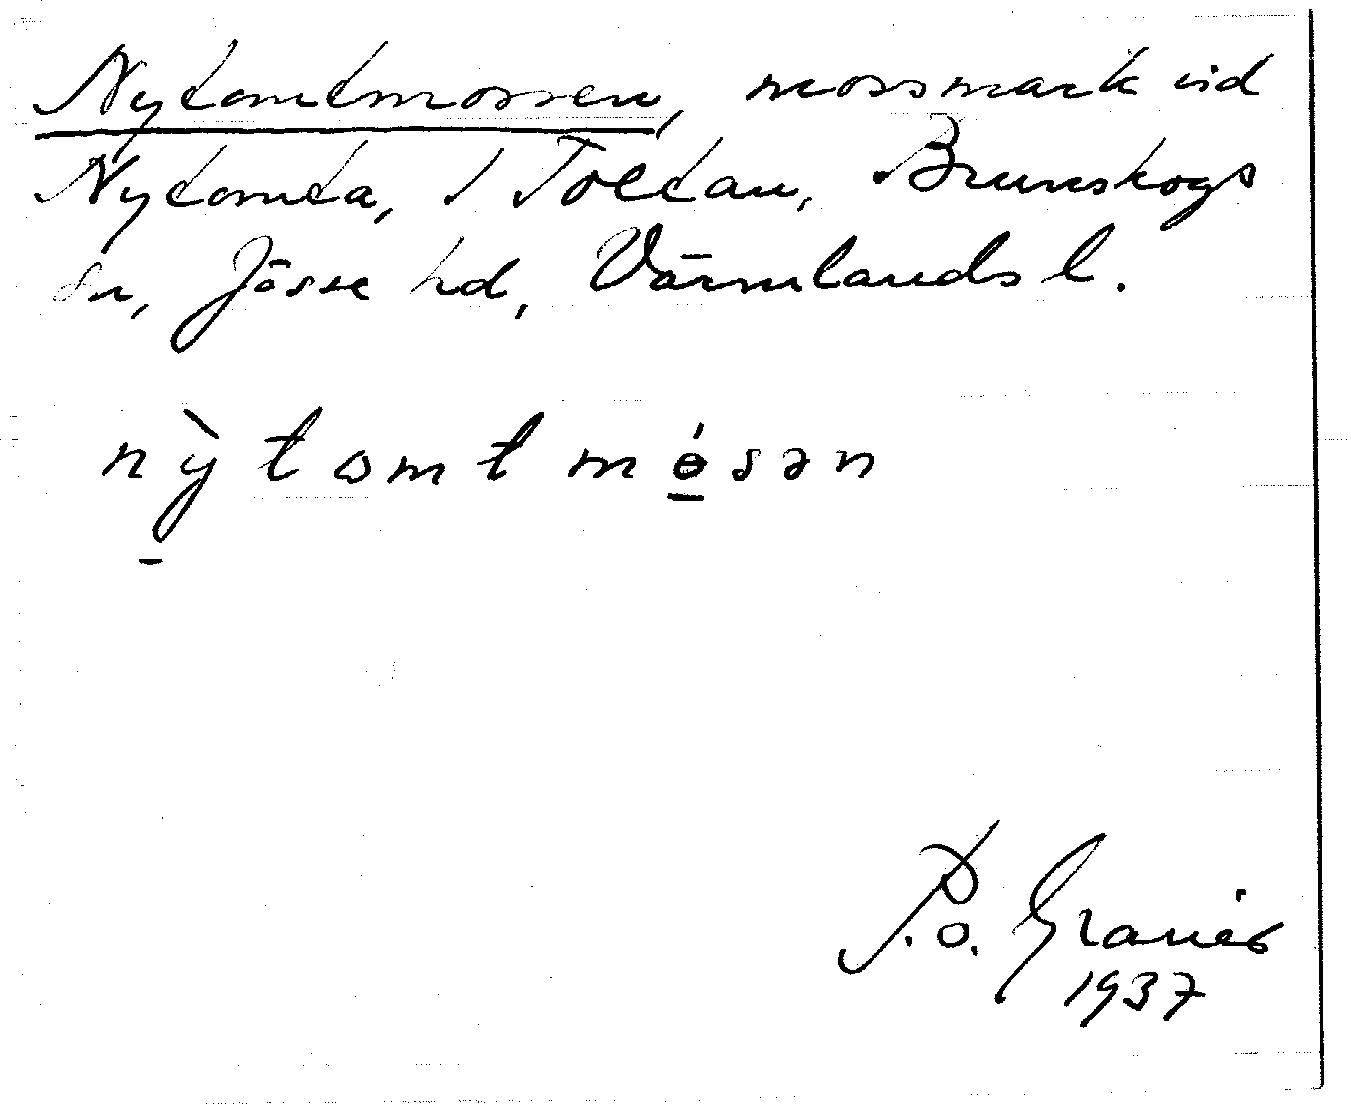 Nytomtmossen, mossmark vid
Nytomta, 1 Tolltan, Brunskogs
sn, Jösse hd, Värmlands l.
nỳ̠tɷmtmɵ̠́sən
P. O. Granér
1937